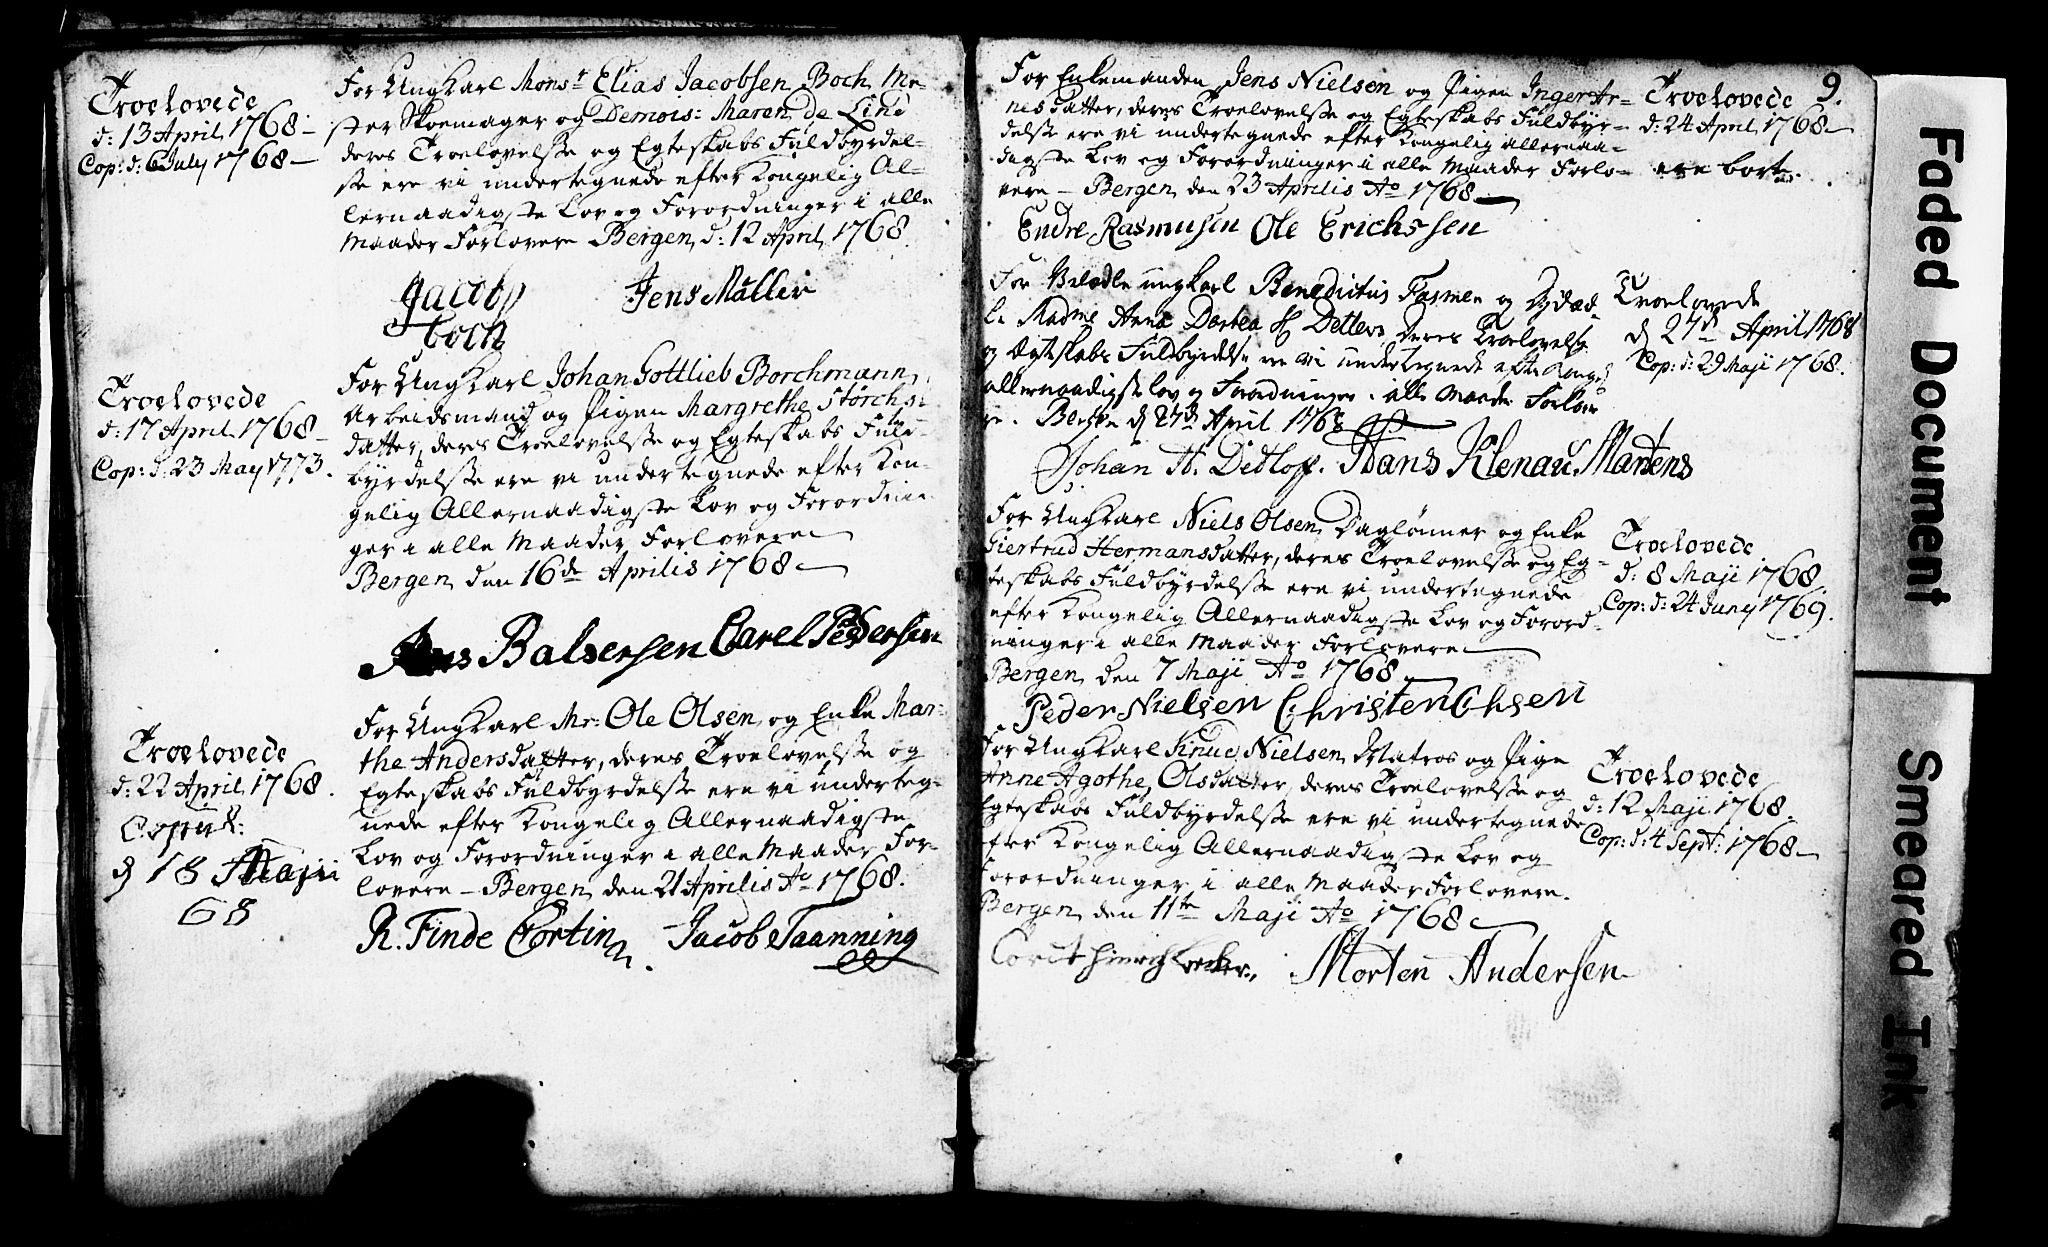 Troelovede
d: 13 April 1768 –
Cop: d: 6 July 1768 –
For Ungkarl Mons:r Elias Jacobsen Boch, Me-
ster Skoemager og Demois: Maren de Lind
deres Troelovelsse og Egteskabs Fuldbyrdel-
sse ere vi undertegnede efter Kongelig Al-
lernaadigste Lov og Forordninger i alle
Maader Forlovere Bergen d: 12 April 1768.
Jacob Jens Möller
Boch
Troelovede
d: 17 April 1768 –
Cop: d: 23 May 1773.
For Ungkarl Johan Gottlieb Borchmann,
Arbeidsmand og Pigen Margrethe Störchs-
datter, deres Troelovelsse og Egteskabs Fuld-
byrdelsse ere vi undertegnede efter Kon-
gelig Allernaadigste Lov og Forordnin-
ger i alle Maader Forlovere
Bergen den 16de Aprilis 1768 –
Balsersen Carel Pedersen
Troelovede
d: 22 April 1768.
Copul:
d 18 Maji
68
For Ungkarl Mr: Ole Olsen og Enke Mar-
the Andersdatter, deres Troelovelsse og
Egteskabs Fuldbyrdelsse ere vi underteg-
nede efter Kongelig Allernaadigste
Lov og Forordninger i alle Maader For-
lovere – Bergen den 21 Aprilis Ao 1768.
R. Finde Cortin Jacob Taanning
9.
For Enkemanden Jens Nielsen og Pigen Inger Ar-
nesdatter, deres Troelovelsse og Egteskabs Fuldbyr-
delsse ere vi undertegnede efter Kongelig allernaa-
digste Lov og Forordninger i alle Maader Forlo-
vere – Bergen den 23 Aprilis Ao 1768 –
Endre Rasmusen Ole Erichssen
Troelovede
d: 24 April 1768 –
ere borte.
For Velædle ungkarl Benedictus Fasmer og Dydæd-
le Madme Anna Dortea Detlevs, Deres Troelovelse
og Egteskabs Fuldbyrdelse ere vi undertegnede efter Kongel
allernaadigste lov og Forordninger i alle maader Forlove
re. Bergen d 27d April 1768
Johan H. Ditlof. Hans Klenau Martens
Troelovede
d 27d April 1768
Cop: d: 29 Maji 1768.
For Ungkarl Niels Olsen, Daglönner og Enke
Giertrud Hermansdatter, deres Troelovelsse og Eg-
teskabs Fuldbyrdelsse ere vi undertegnede
efter Kongelig Allernaadigste Lov og Forord-
ninger i alle Maader Forlovere
Bergen den 7 Maji Ao 1768
Peder Nielsen Christen Ohsen
Troelovede
d: 8 Maji 1768.
Cop: d: 24 Juny 1769.
For Ungkarl Knud Nielsen, Matros og Pige
Anne Agothe Olsdatter, deres Troelovelsse og
Egteskabs Fuldbyrdelsse ere vi undertegnede
efter Kongelig Allernaadigste Lov og
Forordninger i alle Maader Forlovere.
Bergen den 11te Maji Ao 1768
Cordt Hinrich Morten Andersen
Troelovede
d: 12 Maji 1768.
Cop: d: 4 Sept: 1768 –
Faded Document
Smeared Ink